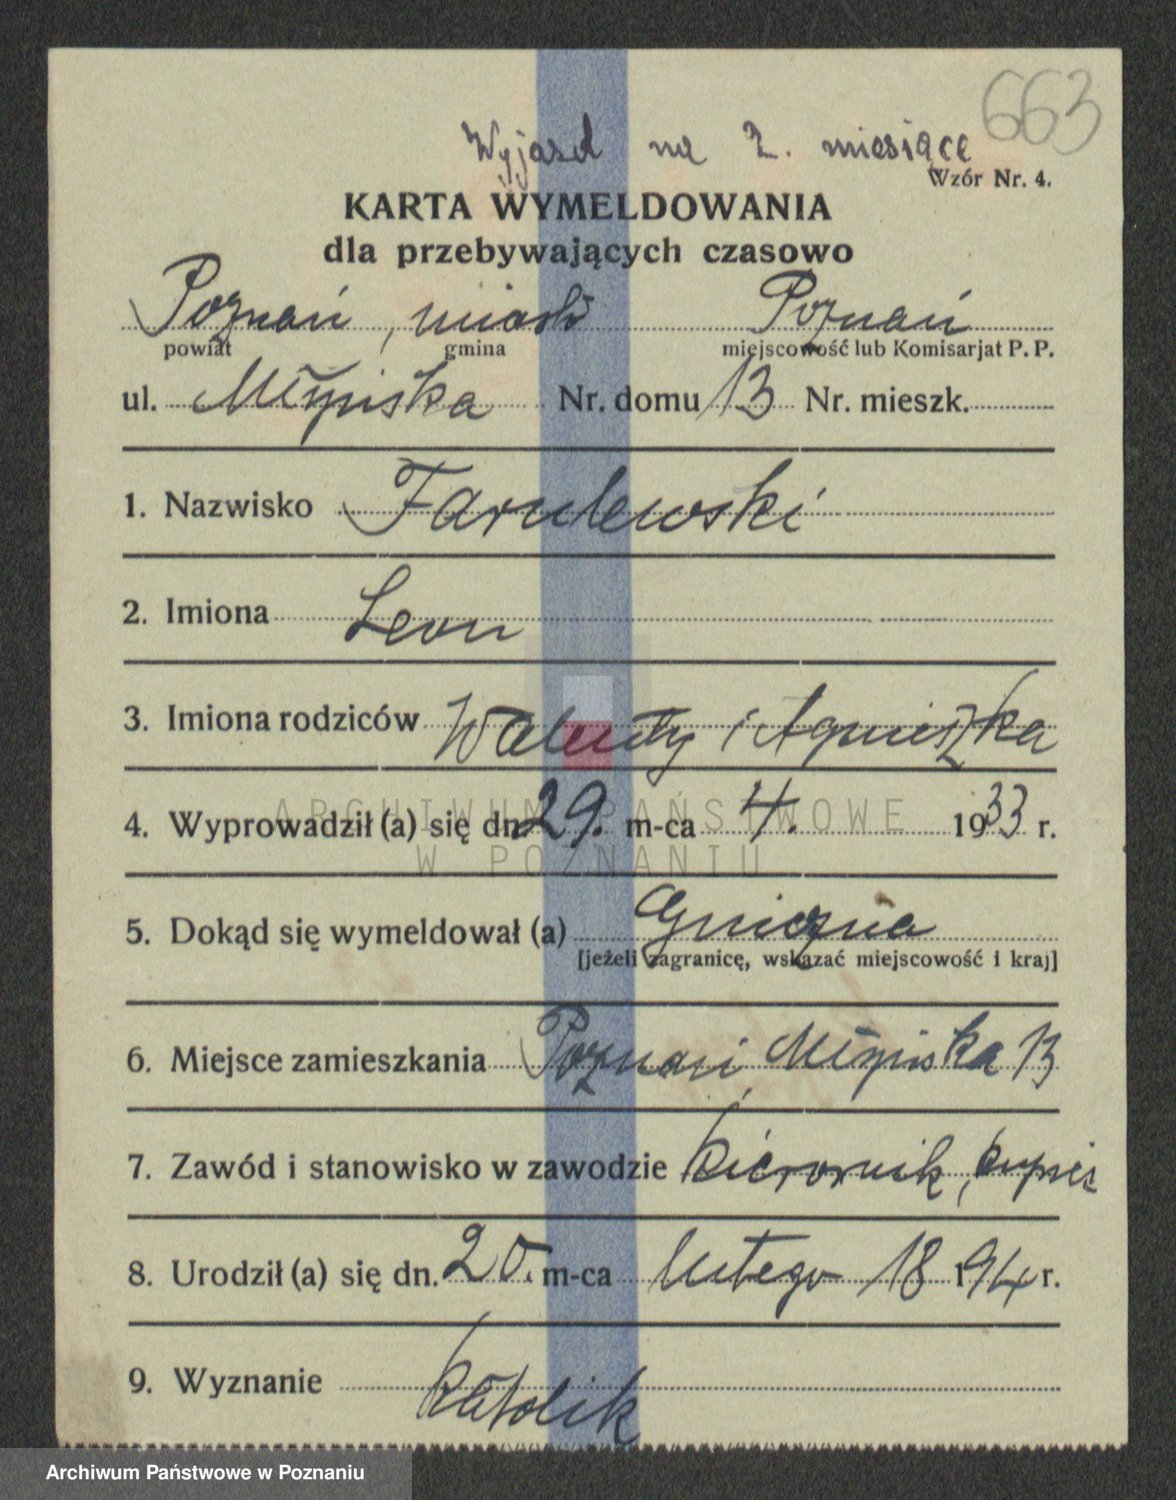 663
Wyjazd na 2. miesiące
Wzór Nr. 4.
KARTA WYMELDOWANIA
dla przebywających czasowo
Poznań, miasto Poznań
powiat gmina miejscowość lub Komisarjat P. P.
ul. Młyńska Nr. domu 13 Nr. mieszk.
1. Nazwisko Farulewski
2. Imiona Leon
3. Imiona rodziców Walenty i Agnieszka
4. Wyprowadził (a) się dn. 29. m-ca 4. 1933 r.
ARCHIWUM PAŃSTWOWE
W POZNANIU
5. Dokąd się wymeldował (a) Gniezna
[jeżeli zagranicę, wskazać miejscowość i kraj]
6. Miejsce zamieszkania Poznań, Młyńska 13
7. Zawód i stanowisko w zawodzie kierownik, kupiec
8. Urodził (a) się dn. 20. m-ca lutego 18 194 r.
9. Wyznanie katolik
Archiwum Państwowe w Poznaniu